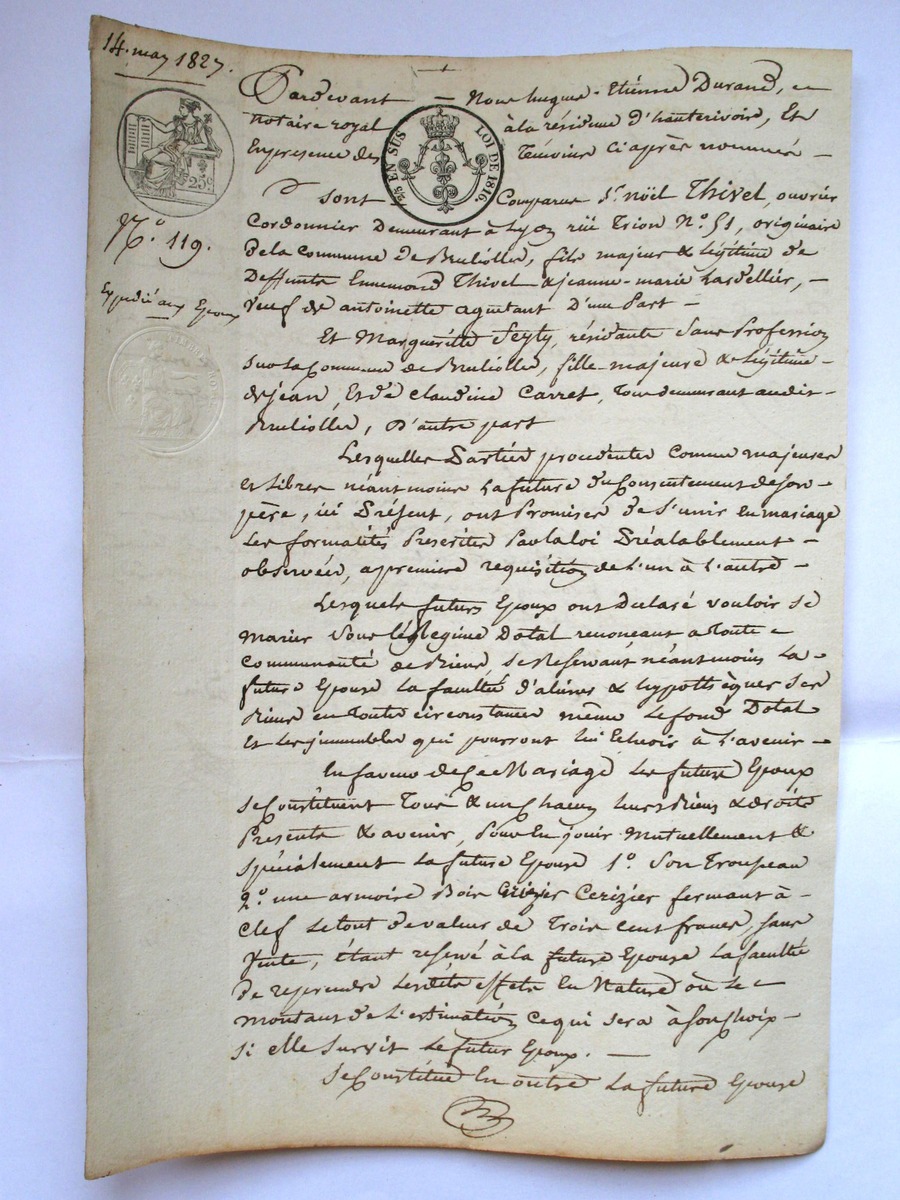 14. may 1827.
Pardevant — Nous hugues-Etiénne Durand,
notaire royal à la résidence d'hauterivoire, Et
En presence des Témoins ci après nommés —
25 EN SUS LOI DE 1816.
25c
Sont Comparus Sr. noël Thivel, ouvrier
Cordonnier Demeurant à Lyon rüe Trion No. 51, originaire
No. 119.
de la Commune de Brulioller, fils majeur & légitime de
Deffunts Ennemond Thivel & jeanne-marie Lardellier, —
Expedié aux Epoux
Veuf de antoinette aguetant D'une Part —
Et Marguérite Seyty, résidante Sans Profession
Sur la Commune de Brulioller, fille majeure & Légitime
de jean, Et de Claudine Carret, Tous demeurant audit-
Brulioller, D'autre part
Lesquelles Parties procedentes comme majeures
et Libres néantmoins La future du Consentement de son
père, ici Présent, ont Promises de S'unir En mariage
Les formalités Prescrites Par la loi Préalablement —
observées, a premiere requisition de L'un à L'autre —
Lesquels futurs Epoux ont Declaré vouloir se
Marier Sous le Regime Dotal renonçant a Toute
Communauté de Biens, se Reservant néantmoins La
future Epouse La faculté d'aliéner & hypothéquer Ses
Biens en Toutes circonstances même Le fond Dotal
Et Les immeubles qui pourront lui Echoir à L'avenir —
En faveur de Ce Mariage Les futurs Epoux
se Constituent Tous & un Chacun leurs Biens & droits
Presents & avenir, Pour En jouir Mutuellement &
spécialement La future Epouse 1o. Son Trousseau
2o. une armoire Bois Cerizier fermant à
Clef Le tout de valeur de Trois cent francs, sans
Vente, étant reservé à La future Epouse La faculté
de reprendre Lesdits effets En Nature où Le
montant de L'estimation ce qui sera à son choix —
Si elle Survit Le futur Epoux. —
Se Constitue En outre La future Epouse